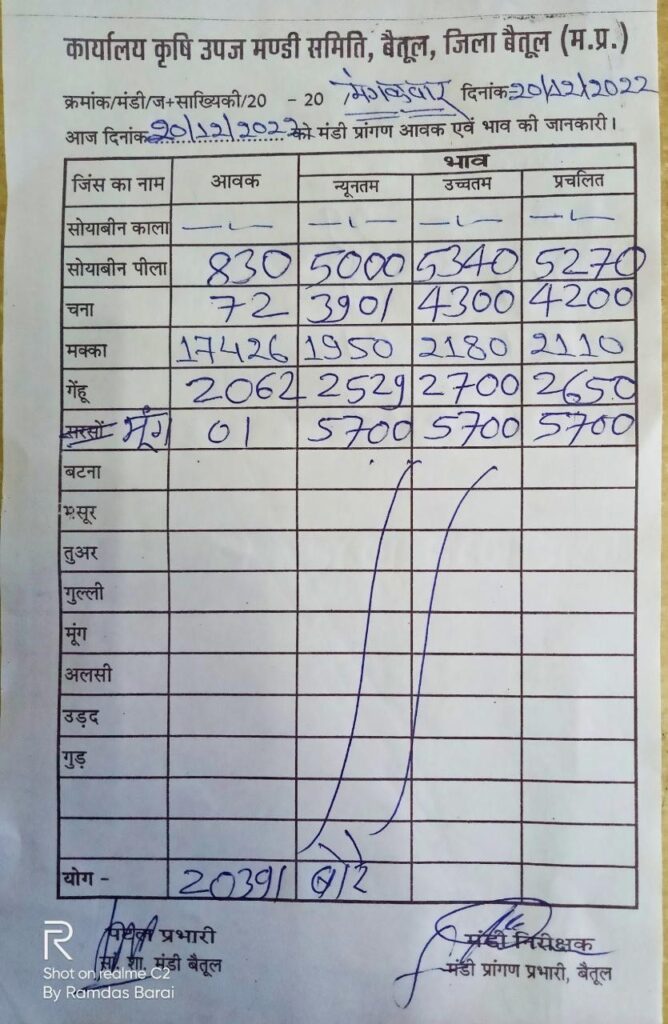 कार्यालय कृषि उपज मण्डी समिति, बैतूल, जिला बैतूल (म.प्र.)
क्रमांक/मंडी/ज+साख्यिकी/20 - 20 मंगळवार दिनांक 20/12/2022
आज दिनांक 20/12/2022 को मंडी प्रांगण आवक एवं भाव की जानकारी।
जिंस का नाम आवक भाव
न्यूनतम उच्चतम प्रचलित
सोयाबीन काला -"- -"- -"- -"-
सोयाबीन पीला 830 5000 5340 5270
चना 72 3901 4300 4200
मक्का 17426 1950 2180 2110
गेंहू 2062 2529 2700 2650
सरसों मूंग 01 5700 5700 5700
बटना
मसूर
तुअर
गुल्ली
मूंग
अलसी
उड़द
गुड़
योग - 20391 बोरे
प्रभारी मंडी निरीक्षक
सां. शा. मंडी बैतूल मंडी प्रांगण प्रभारी, बैतूल
R
Shot on realme C2
By Ramdas Barai